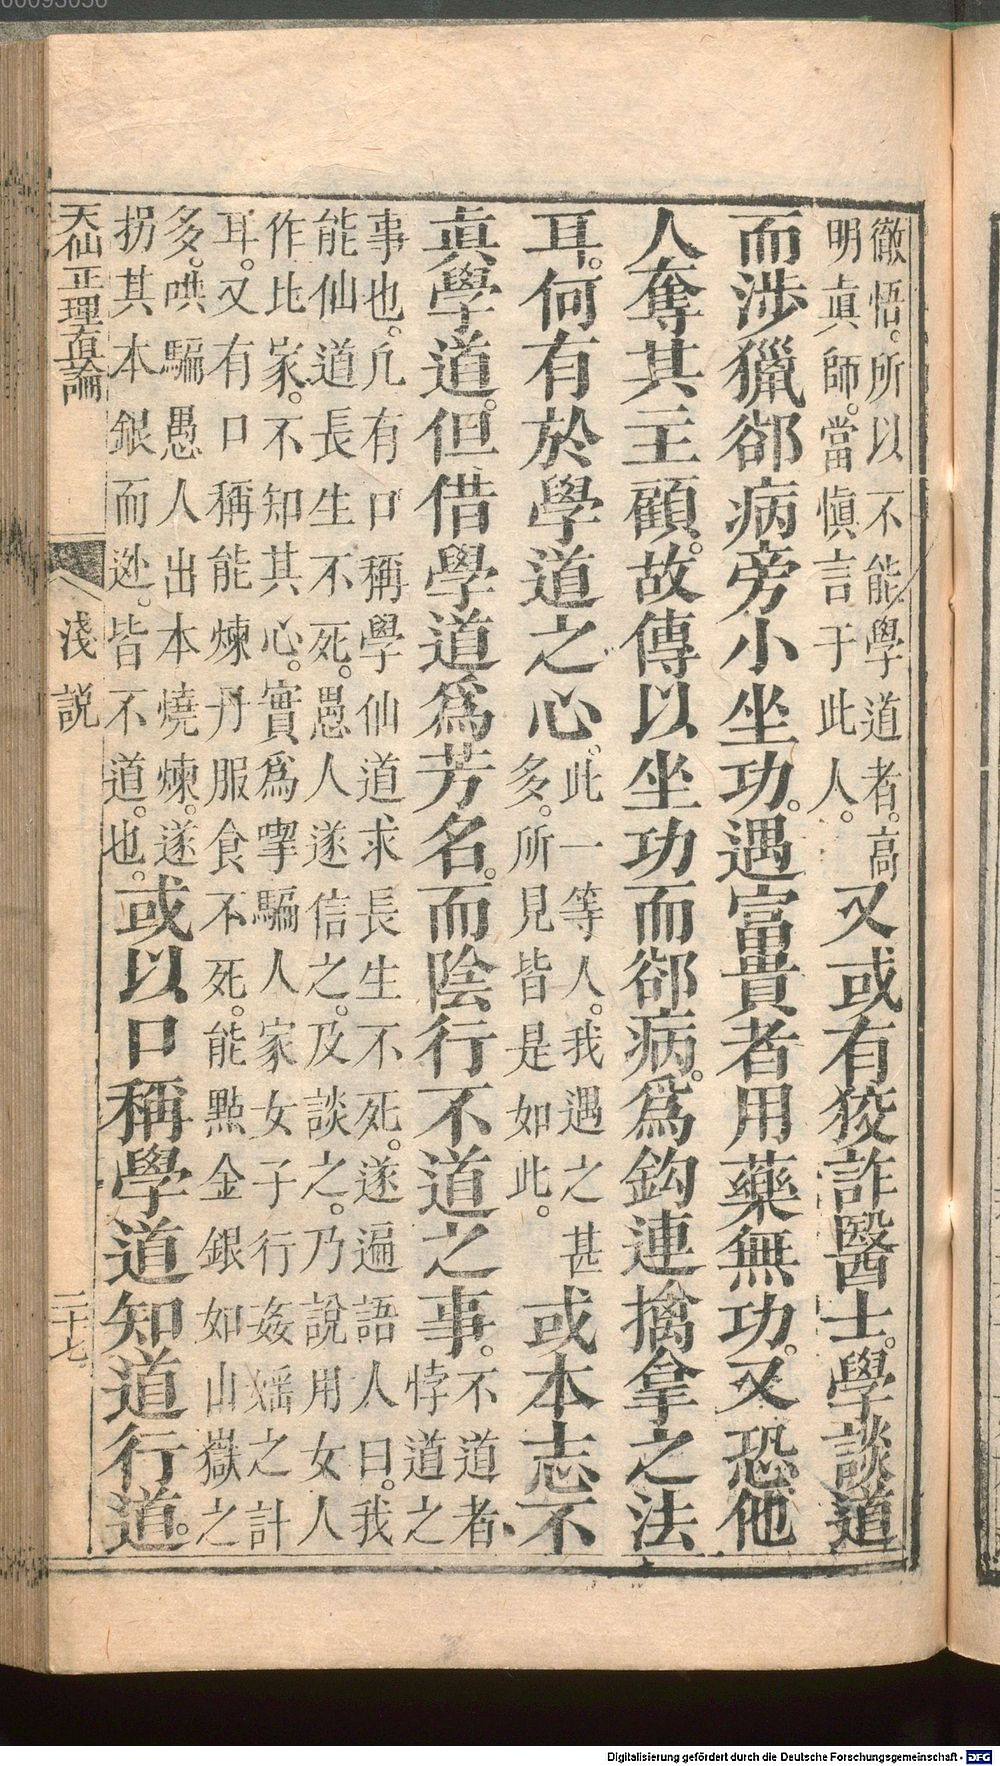 徹悟。所以不能學道者。高
明眞師。當愼言于此人。
又或有狡詐醫士。學談道
而涉獵郤病旁小坐功。遇富貴者用藥無功。又恐他
人奪其主顧。故傳以坐功而郤病。爲鈎連擒拿之法
耳。何有於學道之心。
此一等人。我遇之甚
多。所見皆是如此。
或本志不
眞學道。但借學道爲芳名。而陰行不道之事。
不道者
悖道之
事也。凢有口稱學仙道求長生不死。遂遍語人曰。我
能仙道長生不死。愚人遂信之。及談之。乃說用女人
作比家。不知其心。實爲㨪騙人家女子行姦婬之計
耳。又有口稱能煉丹服食不死。能點金銀如山嶽之
多。哄騙愚人出本燒煉。遂
拐其本銀而逃。皆不道也。
或以口稱學道知道行道。
天仙正理直論
淺說
二十七
00093056
Digitalisierung gefördert durch die Deutsche Forschungsgemeinschaft - DFG